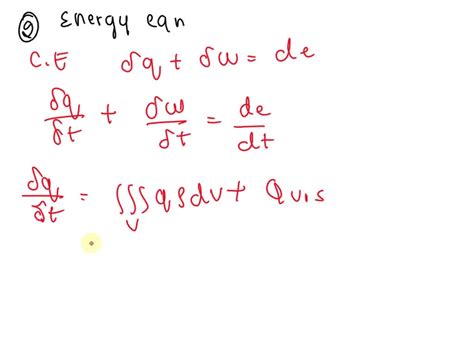 ⑨ Energy eqn
C.E δq + δw = de
δq/δt + δw/δt = de/dt
δq/δt = ∭_V qρdv + Qvis